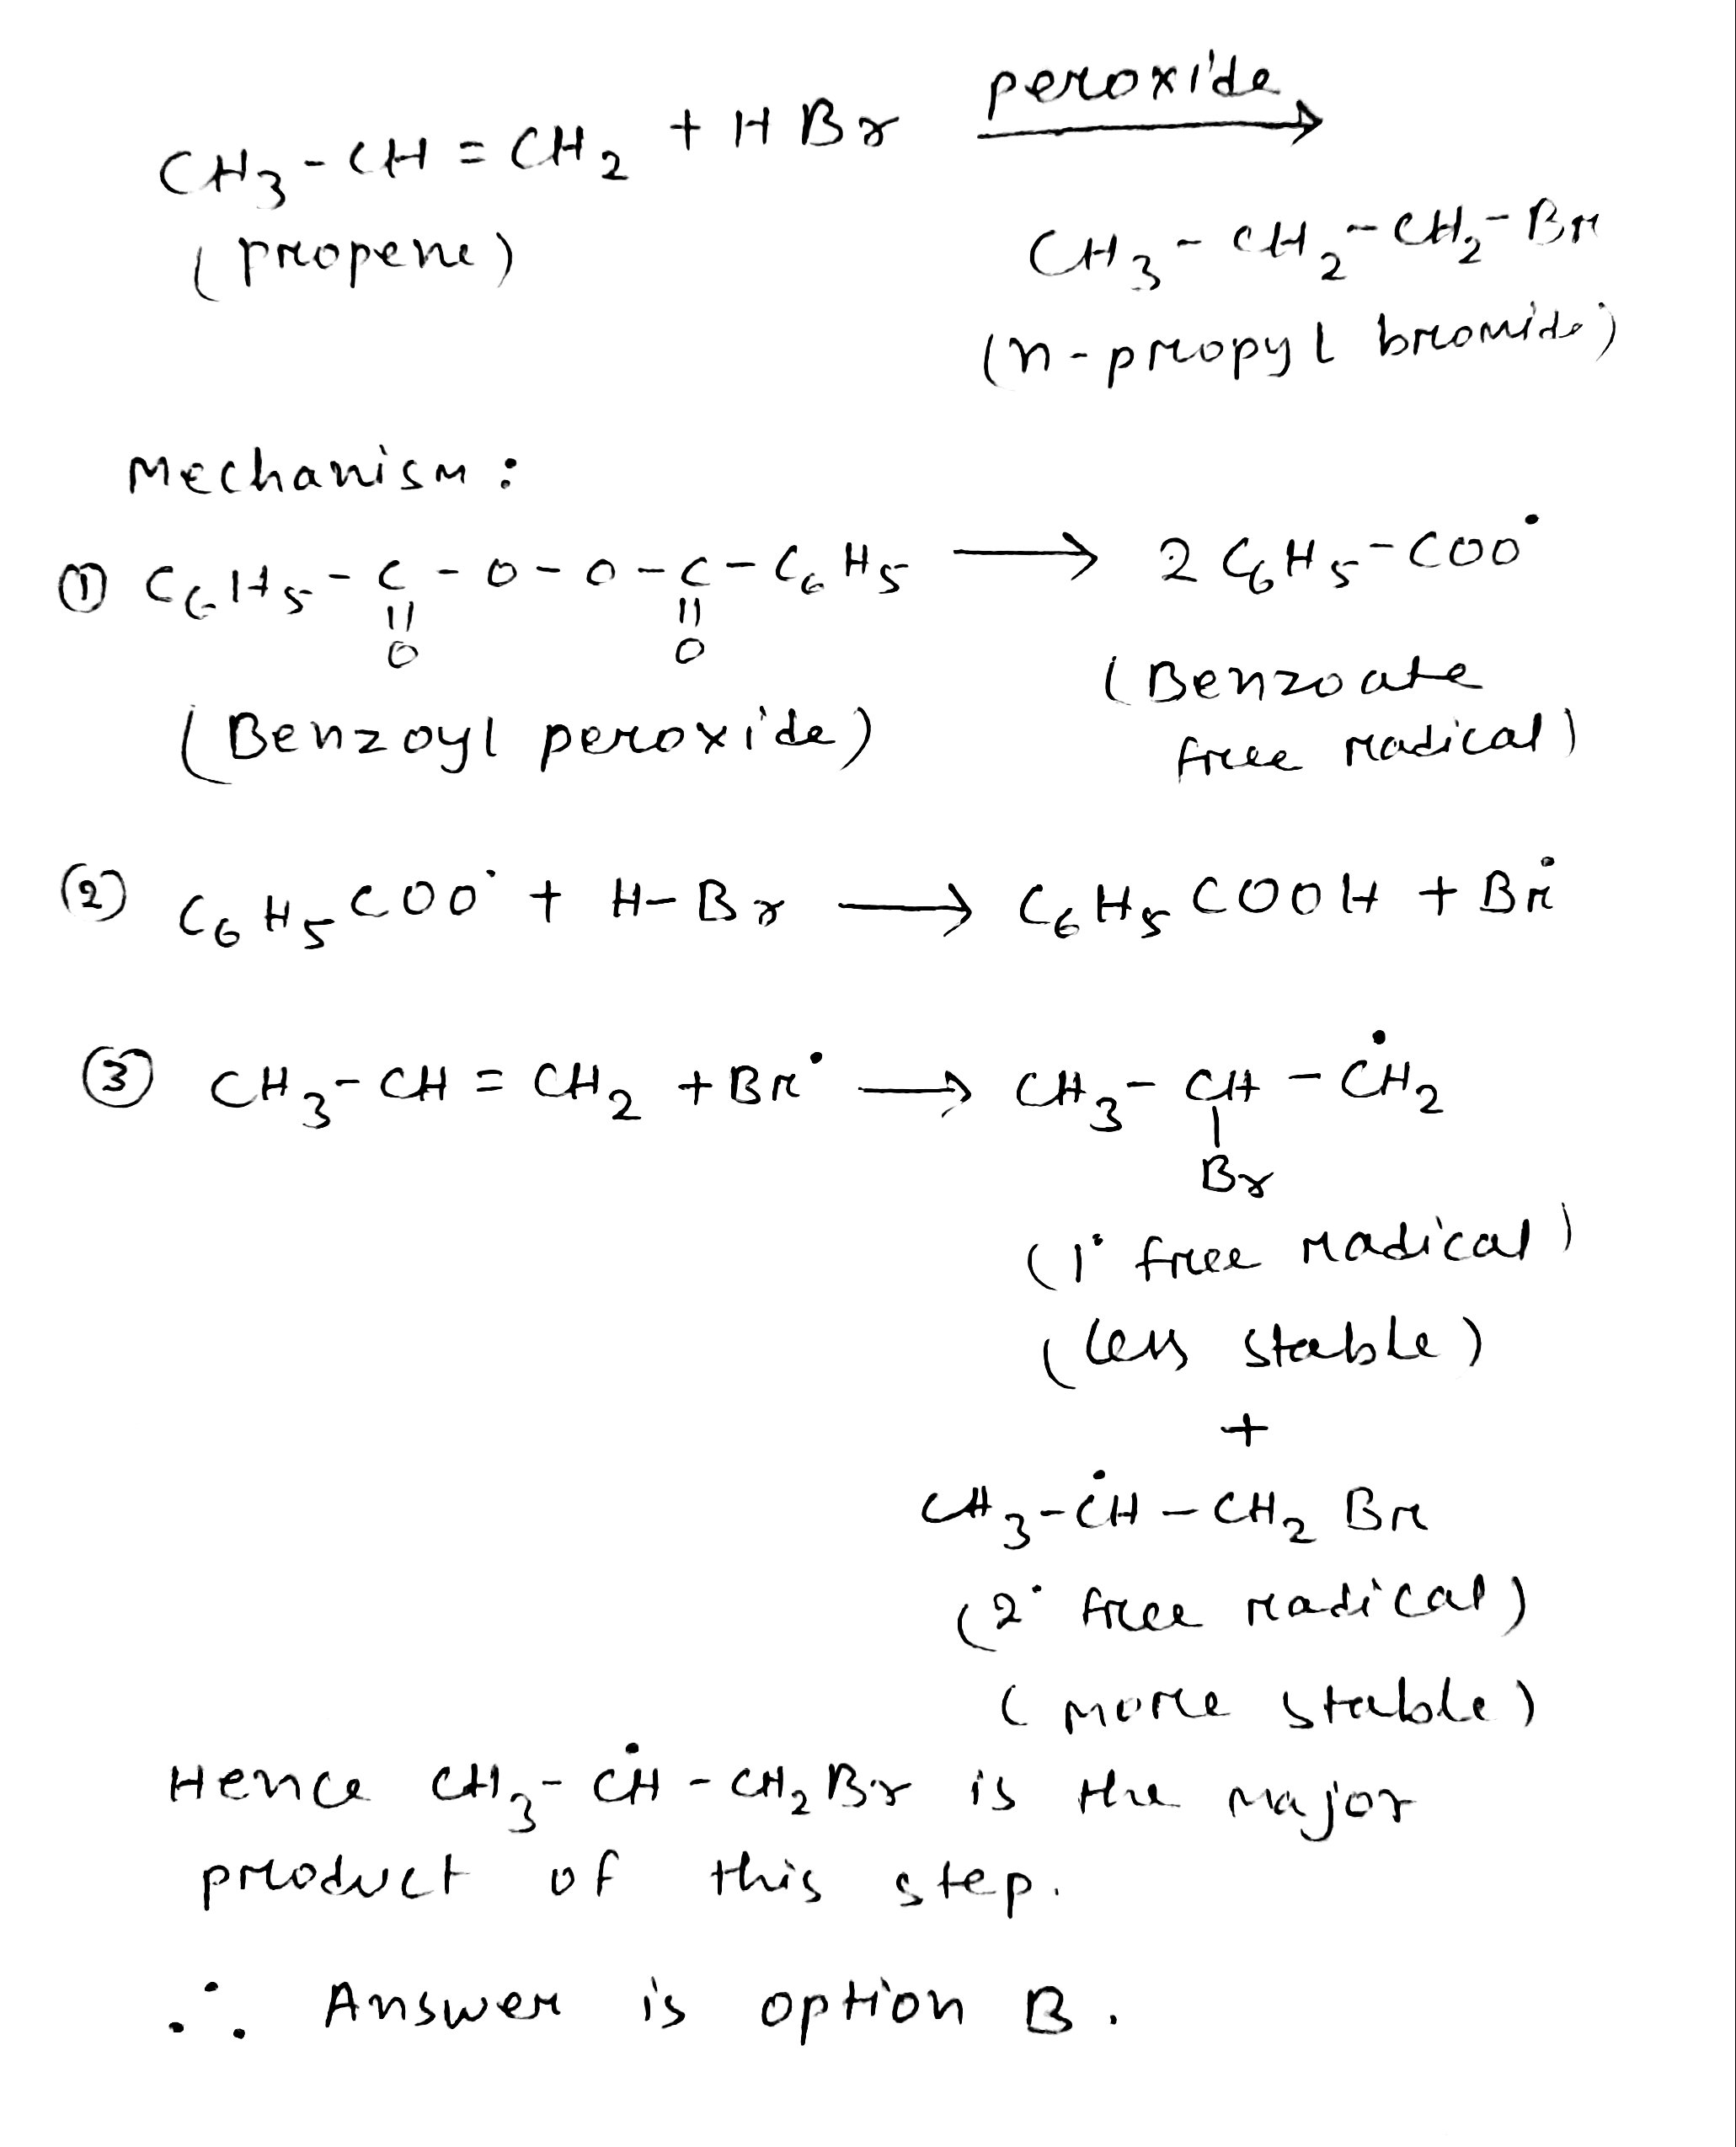 CH₃-CH=CH₂ + HBr peroxide⟶
(propene)
CH₃-CH₂-CH₂-Br
(n-propyl bromide)
Mechanism:
① C₆H₅-C-O-O-C-C₆H₅ ⟶ 2C₆H₅-COO•
|| ||
O O
(Benzoyl peroxide)
(Benzoate
free radical)
(2) C₆H₅COO• + H-Br ⟶ C₆H₅COOH + Br•
③ CH₃-CH=CH₂ + Br• ⟶ CH₃-CH-ĊH₂
|
Br
(1° free radical)
(less stable)
+
CH₃-ĊH-CH₂Br
(2° free radical)
(more stable)
Hence CH₃-ĊH-CH₂Br is the major
product of this step.
∴ Answer is option B.